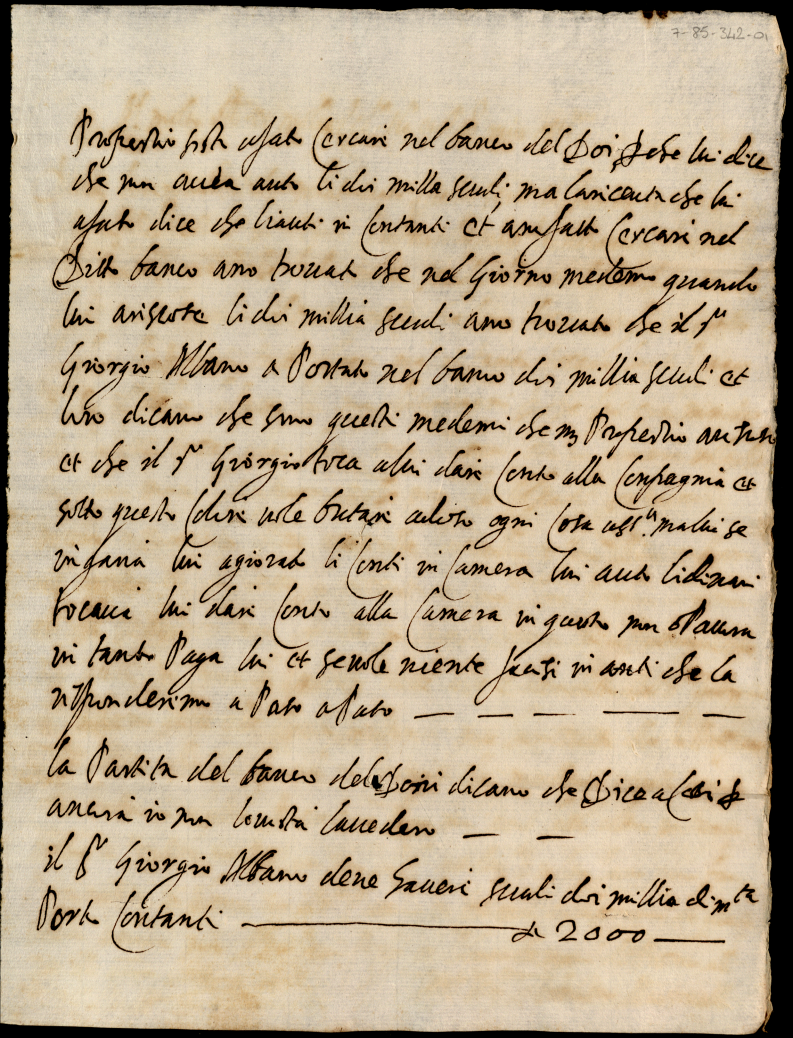 7-85-342-01
Prosperino fatto cercari nel banco del Doi che lui dice
che non aveva auto li doi milla scudi, ma la ricevuta che lui
a fato dice che li auti in Contanti et ano fatto Cercari nel
Ditto banco ano trovato che nel Giorno medemo quando
lui a riscote li doi millia scudi ano trovato che il sr
Giorgio Albano a Portato nel banco doi millia scudi et
loro dicano che sono questi medemi che Prosperino
et che il sr Giorgio toca a lui dare Conto alla Compagnia et
sotto questo Colore vole butare adoso ogni Cosa ma lui se
ingana lui a giorato li Conti in Camera lui auto li dinari
tocava lui dare Conto alla Camera in questo non Paura
in tanto Paga lui et se vole niente in anti che la
risponderimo a Pato a Pato — — — — —
la Partita del banco del Doi dicano che Dice a
ancora io non lo vista la vedero — —
il Sr Giorgio Albano deve haveri scudi doi millia di mta
Porto Contanti — 2000 —